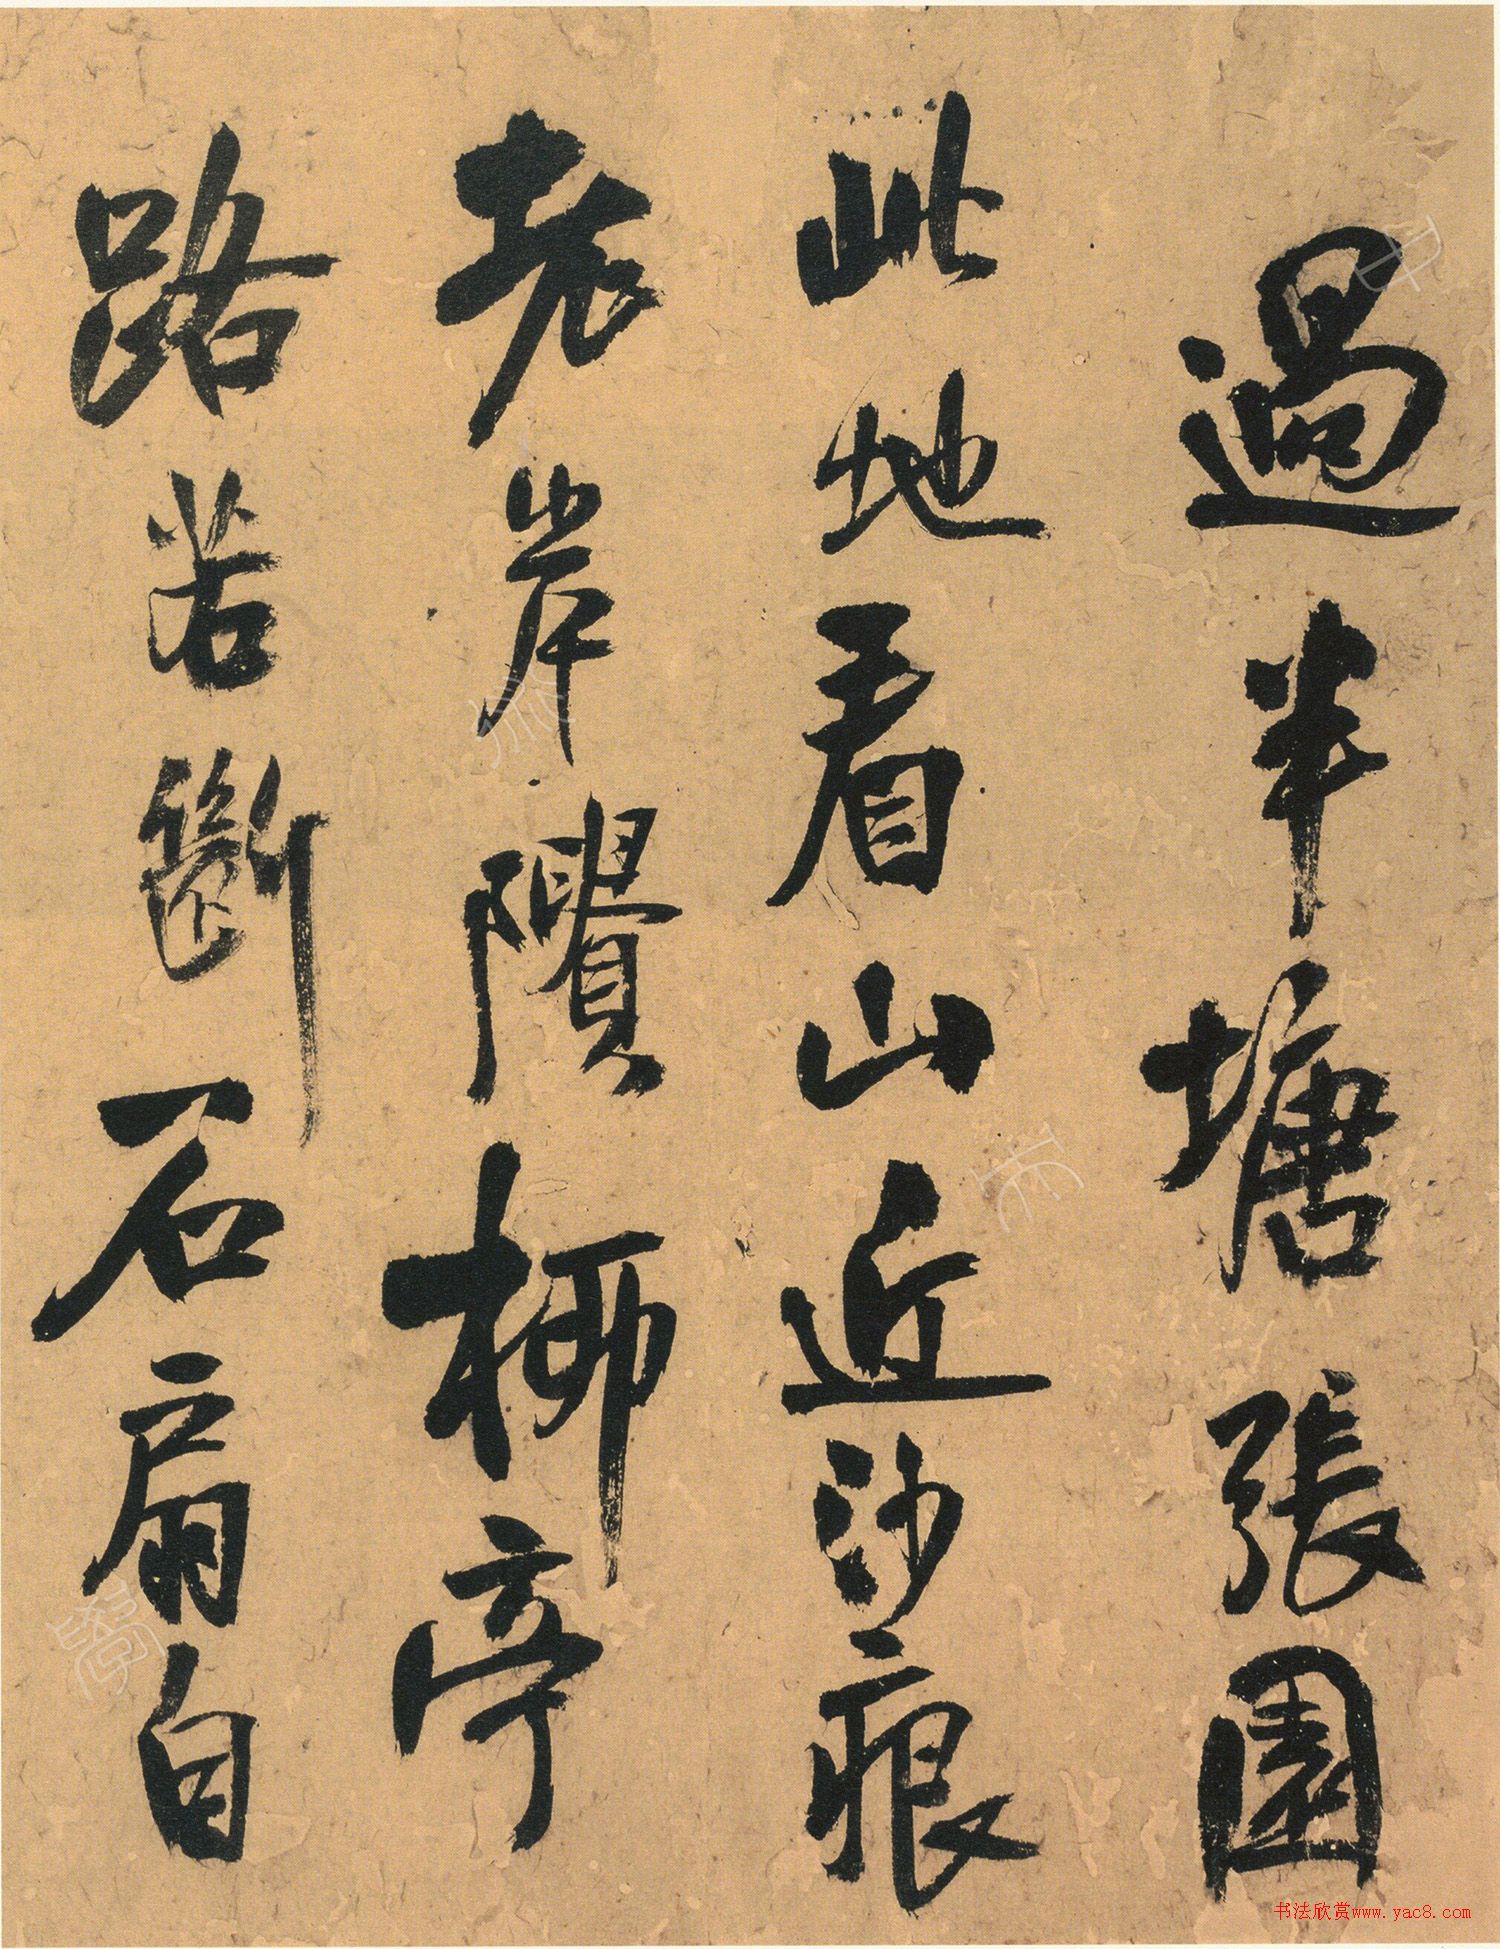 過半塘張園
此地看山近沙痕
老岸隤柳亭
路苔斷石扇白
书法欣赏www.yac8.com